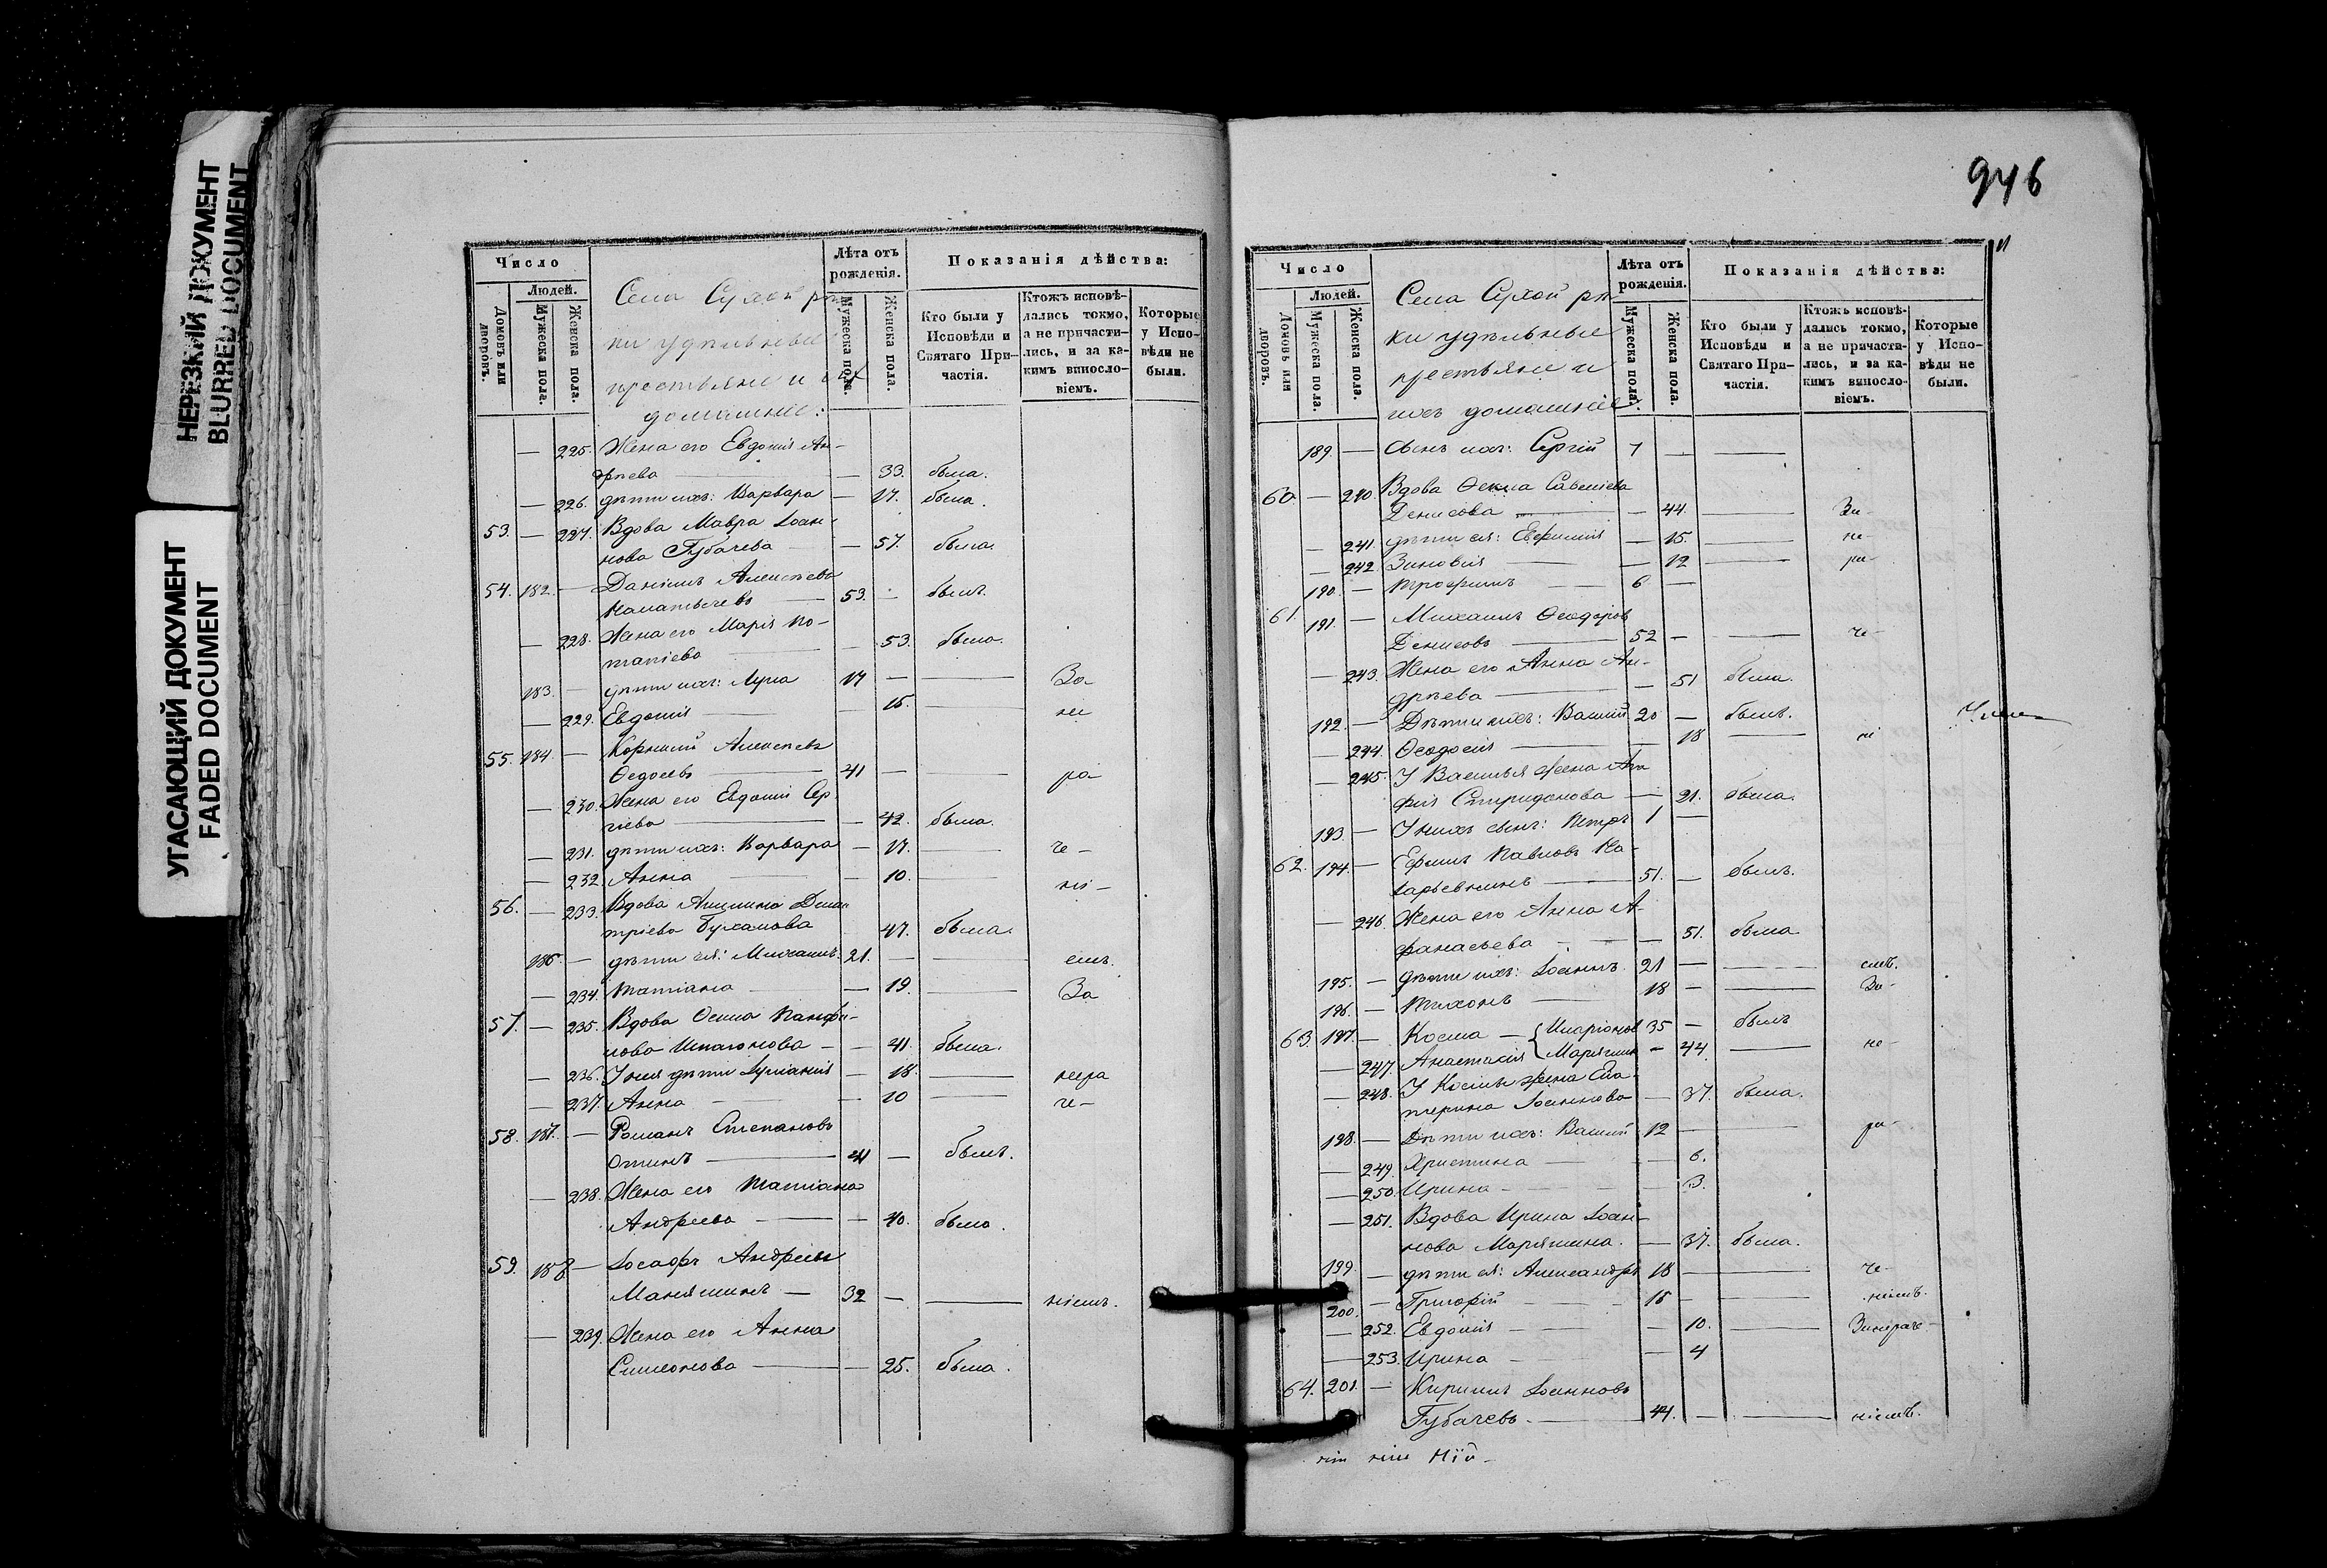 НЕРЕЗКИЙ ДОКУМЕНТ
BLURRED DOCUMENT
УГАСАЮЩИЙ ДОКУМЕНТ
FADED DOCUMENT
Число
Людей.
Домовъ или дворовъ.
Мужеска пола.
Женска пола.
Села Сухой рѣ-
ки удѣльные
крестьяне и ихъ
домашніе:
Лѣта отъ рожденія.
Мужеска пола.
Женска пола.
Показанія дѣйства:
Кто были у Исповѣди и Святаго Причастія.
Ктожъ исповѣдались токмо, а не причастились, и за какимъ винословіемъ.
Которые у Исповѣди не были.
— 225. Жена его Евдокія Ан-
дреева — 33. была.
— 226. дѣти ихъ: Варвара — 17. была.
53. — 227. Вдова Мавра Іоан-
нова Губачева — 57. была.
54. 182. — Даніилъ Алексѣевъ
53. — былъ.
— 228. Жена его Марія По-
тапіева — 53. была.
183. — дѣти ихъ: Лука 17 — — За-
— 229. Евдокія — 15. — не
55. 184. — Корнилій Алексѣевъ
Ѳедосѣевъ 41 — — ра-
— 230. Жена его Евдокія Сер-
гіева — 42. была.
— 231. дѣти ихъ: Варвара — 17. — че-
— 232. Анна — 10. — ні-
56. — 233. Вдова Акилина Дими-
тріева Буханова 47. была.
186. — дѣти ея: Михаилъ. 21. — — емъ.
— 234. Татіана — 19. — За
57. — 235. Вдова Ѳекла Панфи-
лова — 41. была.
— 236. У нея дѣти Лукіанія — 18. — нера
— 237. Анна — 10 — че-
58. 187. — Романъ Степановъ
41 — былъ.
— 238. Жена его Татіана
Андреева — 40. была.
59. 188 — Іосафъ Андреевъ
Манякинъ — 32 — — ніемъ.
— 239. Жена его Анна
Симеонова — 25. была.
946
Число
Людей.
Домовъ или дворовъ.
Мужеска пола.
Женска пола.
Села Сухой рѣ-
ки удѣльные
крестьяне и
ихъ домашніе
Лѣта отъ рожденія.
Мужеска пола.
Женска пола.
Показанія дѣйства:
Кто были у Исповѣди и Святаго Причастія.
Ктожъ исповѣдались токмо, а не причастились, и за какимъ винословіемъ.
Которые у Исповѣди не были.
189. — Сынъ ихъ: Сергій 7 — —
60. — 240. Вдова Ѳекла Савеліева
Денисова — 44. — За-
— 241. дѣти ея: Евфимія — 15. — не-
— 242. Зиновія — 12 — ра-
190. — Трофимъ 6 —
61. 191. — Михаилъ Ѳеодоровъ
Денисовъ 52 — — че-
— 243. Жена его Анна Ан-
дреева — 51 была.
192. — Дѣти ихъ: Василій 20 — былъ.
— 244. Ѳеодосія — 18 — ні
— 245. У Василья жена
Спиридонова — 21. была.
193 — У нихъ сынъ: Петръ 1 —
62. 194. — Ефимъ Павловъ
51. — былъ.
— 246. Жена его Анна А-
фанасьева — 51. была
195. — дѣти ихъ: Іоаннъ. 21 — — емъ.
196. — Тихонъ 18 — — За-
63. 197. — Косма — { Иларіоновъ 35 — былъ
— 247. Анастасія { — 44 — не-
— 248. У Космы жена Ека-
терина Іоаннова — 37. была.
198. — Дѣти ихъ: Василій 12 — — ра-
— 249. Христина — 6.
— 250. Ирина — 3.
— 251. Вдова Ирина Іоан-
нова Марякина. — 37. была.
199 — дѣти ея: Александръ 18 — — че-
200. — Григорій — 15 — — ніемъ.
— 252. Евдокія — 10. —
— 253. Ирина — 4
64. 201. — Кириллъ Іоанновъ
Губачевъ. 44. — — ніемъ.